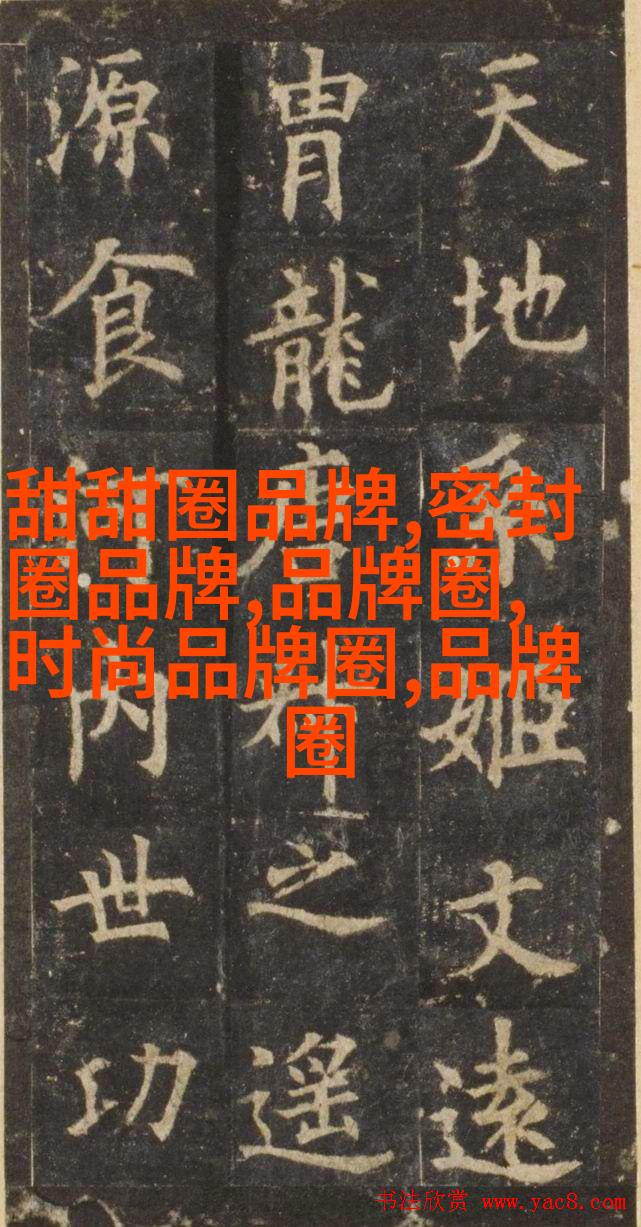 天地姬文遠
胄龍之遥
源食内世功
甜甜圈品牌,密封
圈品牌,品牌圈,
时尚品牌圈,品牌
圈
书法欣赏 www.yac8.com